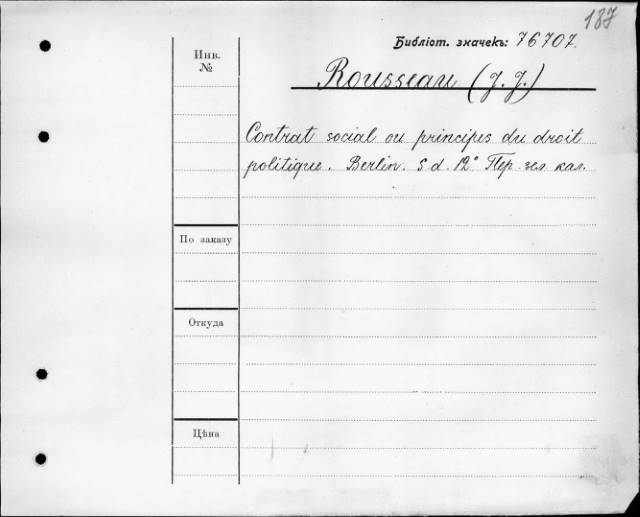 187
Библіот. значекъ: 76707.
Инв.
№
Rousseau (J. J.)
Contrat social ou principes du droit
politique. Berlin. S d. 12° Пер. зел. кал.
По заказу
Откуда
Цѣна